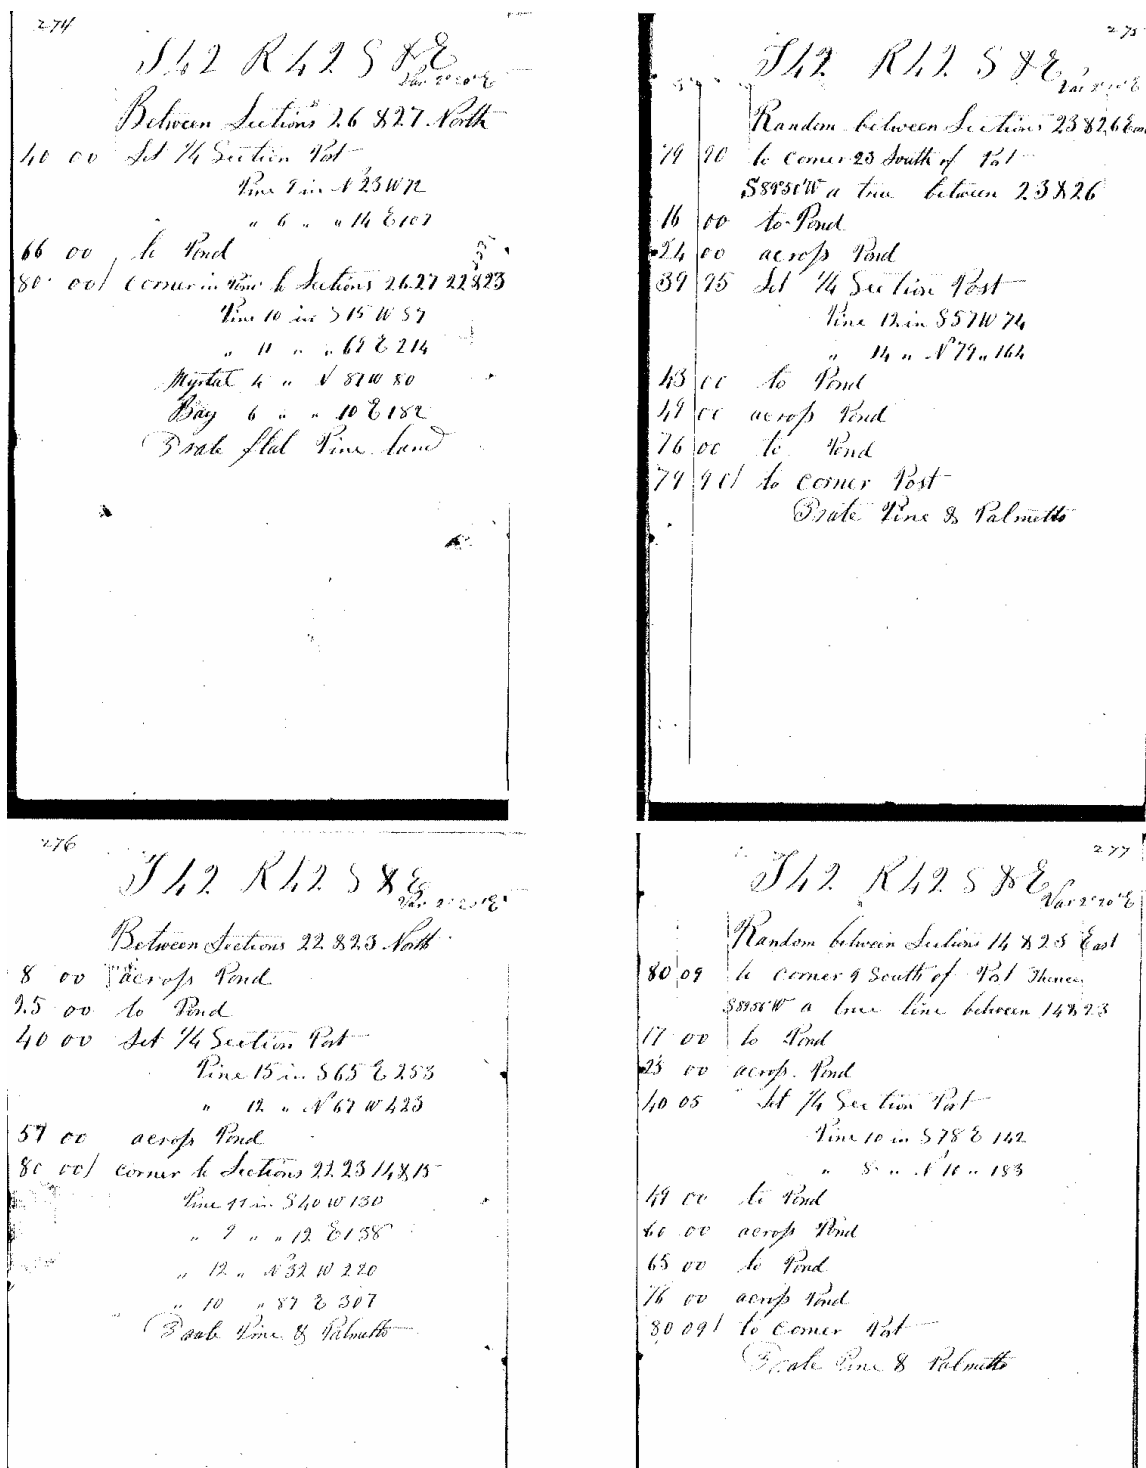 274
T42 R42 S & E
Var 2° 20' E
Between Sections 26 & 27 North
40 00 Set 1/4 Section Post
Pine 9 in N 23 W 72
" 6 " " 14 E 107
66 00 to Pond
80 00 corner in Pond to Sections 26 27 22 & 23
Pine 10 in S 15 W 57
" 11 " " 69 E 214
Myrtal 4 " N 87 W 80
Bay 6 " " 10 E 182
3 rate flat Pine land
275
T42 R42 S & E
Var 2° 20' E
Random between Sections 23 & 26 East
79 90 to corner 23 South of Post
S 89°51' W a true between 23 & 26
16 00 to Pond
24 00 across Pond
39 95 Set 1/4 Section Post
Pine 12 in S 57 W 74
" 14 " N 79 " 164
43 00 to Pond
49 00 across Pond
76 00 to Pond
79 90 to corner Post
3 rate Pine & Palmetto
276
T42 R42 S & E
Var 2° 20' E
Between Sections 22 & 23 North
8 00 across Pond
25 00 to Pond
40 00 Set 1/4 Section Post
Pine 15 in S 65 E 253
" 12 " N 67 W 423
57 00 across Pond
80 00 corner to Sections 22 23 14 & 15
Pine 11 in S 40 W 130
" 9 " " 12 E 138
" 12 " N 32 W 220
" 10 " 87 E 307
3 rate Pine & Palmetto
277
T42 R42 S & E
Var 2° 20' E
Random between Sections 14 & 23 East
80 09 to corner 9 South of Post Thence
S 89 56' W a true line between 14 & 23
17 00 to Pond
23 00 across Pond
40 05 Set 1/4 Section Post
Pine 10 in S 78 E 142
" 8 " N 10 " 183
49 00 to Pond
60 00 across Pond
65 00 to Pond
76 00 across Pond
80 09 to corner Post
3 rate Pine & Palmetto